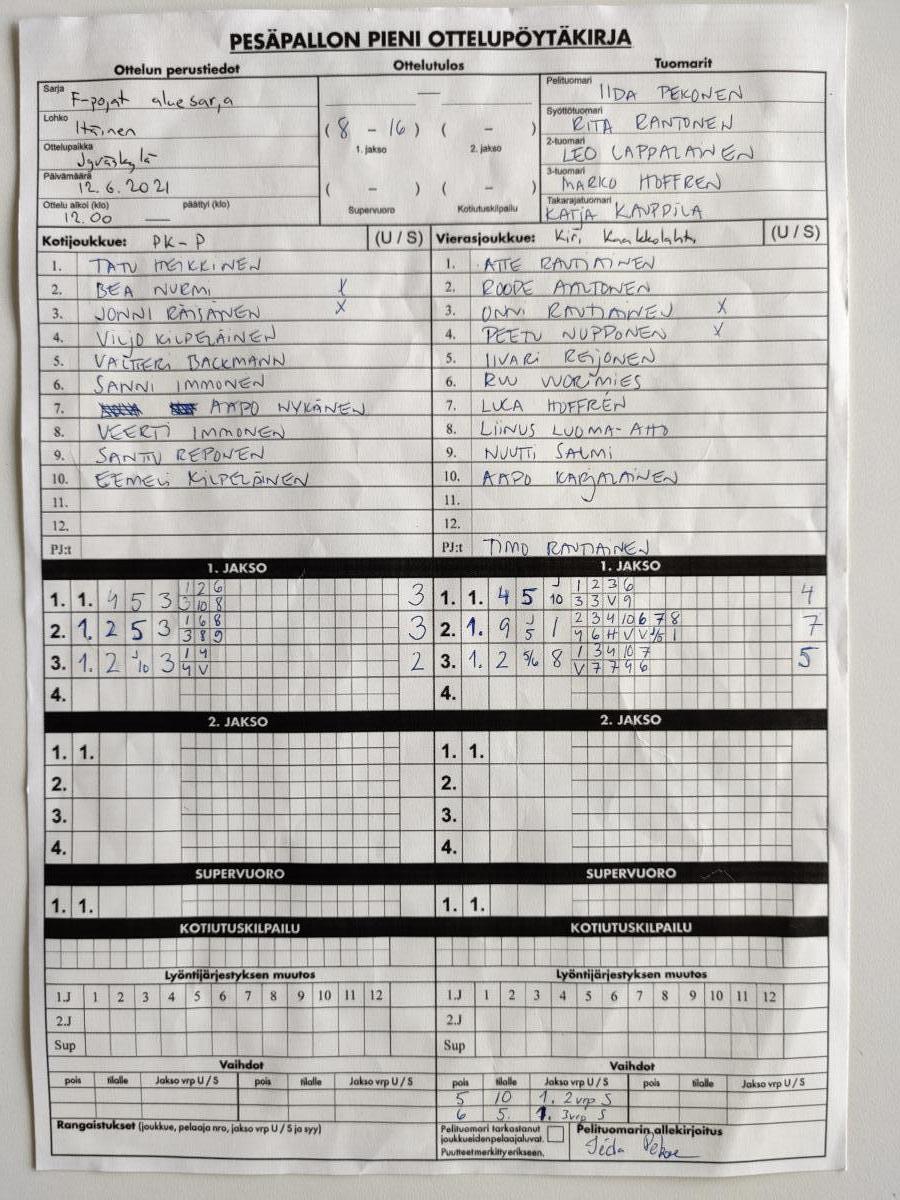 PESÄPALLON PIENI OTTELUPÖYTÄKIRJA
Ottelun perustiedot Ottelutulos Tuomarit
Sarja F-pojat aluesarja
Lohko Itäinen
Ottelupaikka Jyväskylä
Päivämäärä 12.6.2021
Ottelu alkoi (klo) päättyi (klo)
12.00 —
—
( 8 - 16 ) ( - )
1. jakso 2. jakso
( - ) ( - )
Supervuoro Kotiutuskilpailu
Pelituomari IIDA PEKONEN
Syöttötuomari RITA RANTONEN
2-tuomari LEO LAPPALAINEN
3-tuomari MARKO HOFFREN
Takarajatuomari KATJA KAUPPILA
Kotijoukkue: PK-P (U / S)
1. TATU HEIKKINEN
2. BEA NURMI X
3. JONNI RÄISÄNEN X
4. VILJO KILPELÄINEN
5. VALTTERI BACKMANN
6. SANNI IMMONEN
7. AAPO NYKÄNEN
8. VEERTI IMMONEN
9. SANTTU REPONEN
10. EEMELI KILPELÄINEN
11.
12.
PJ:t
Vierasjoukkue: Kiri Kaakkolahti (U / S)
1. ATTE RAUTIAINEN
2. ROOPE AALTONEN
3. ONNI RAUTIAINEN X
4. PEETU NUPPONEN X
5. IIVARI REIJONEN
6. RUU VUORIMIES
7. LUKA HOFFRÉN
8. LIINUS LUOMA-AHO
9. NUUTTI SALMI
10. AAPO KARJALAINEN
11.
12.
PJ:t TIMO RAUTIAINEN
1. JAKSO
1. 1. 4 5 3 1 2 6 3
3 10 8
2. 1. 2 5 3 1 6 8 3
3 8 9
3. 1. 2 J/10 3 1 4 2
4 V
4.
1. JAKSO
1. 1. 4 5 J/10 1 2 3 6 4
3 3 V 9
2. 1. 9 J/5 1 2 3 4 10 6 7 8 7
4 6 H V V J/5 1
3. 1. 2 5/6 8 1 3 4 10 7 5
V 7 7 9 6
4.
2. JAKSO 2. JAKSO
1. 1. 1. 1.
2. 2.
3. 3.
4. 4.
SUPERVUORO SUPERVUORO
1. 1. 1. 1.
KOTIUTUSKILPAILU KOTIUTUSKILPAILU
Lyöntijärjestyksen muutos Lyöntijärjestyksen muutos
1.J 1 2 3 4 5 6 7 8 9 10 11 12 1.J 1 2 3 4 5 6 7 8 9 10 11 12
2.J 2.J
Sup Sup
Vaihdot Vaihdot
pois tilalle Jakso vrp U / S pois tilalle Jakso vrp U / S pois tilalle Jakso vrp U / S pois tilalle Jakso vrp U / S
5 10 1. 2vrp S
6 5. 1. 3vrp S
Rangaistukset (joukkue, pelaaja nro, jakso vrp U / S ja syy)
Pelituomari tarkastanut
joukkueidenpelaajaluvat.
Puutteetmerkittyerikseen.
Pelituomarin allekirjoitus
Iida Pekonen